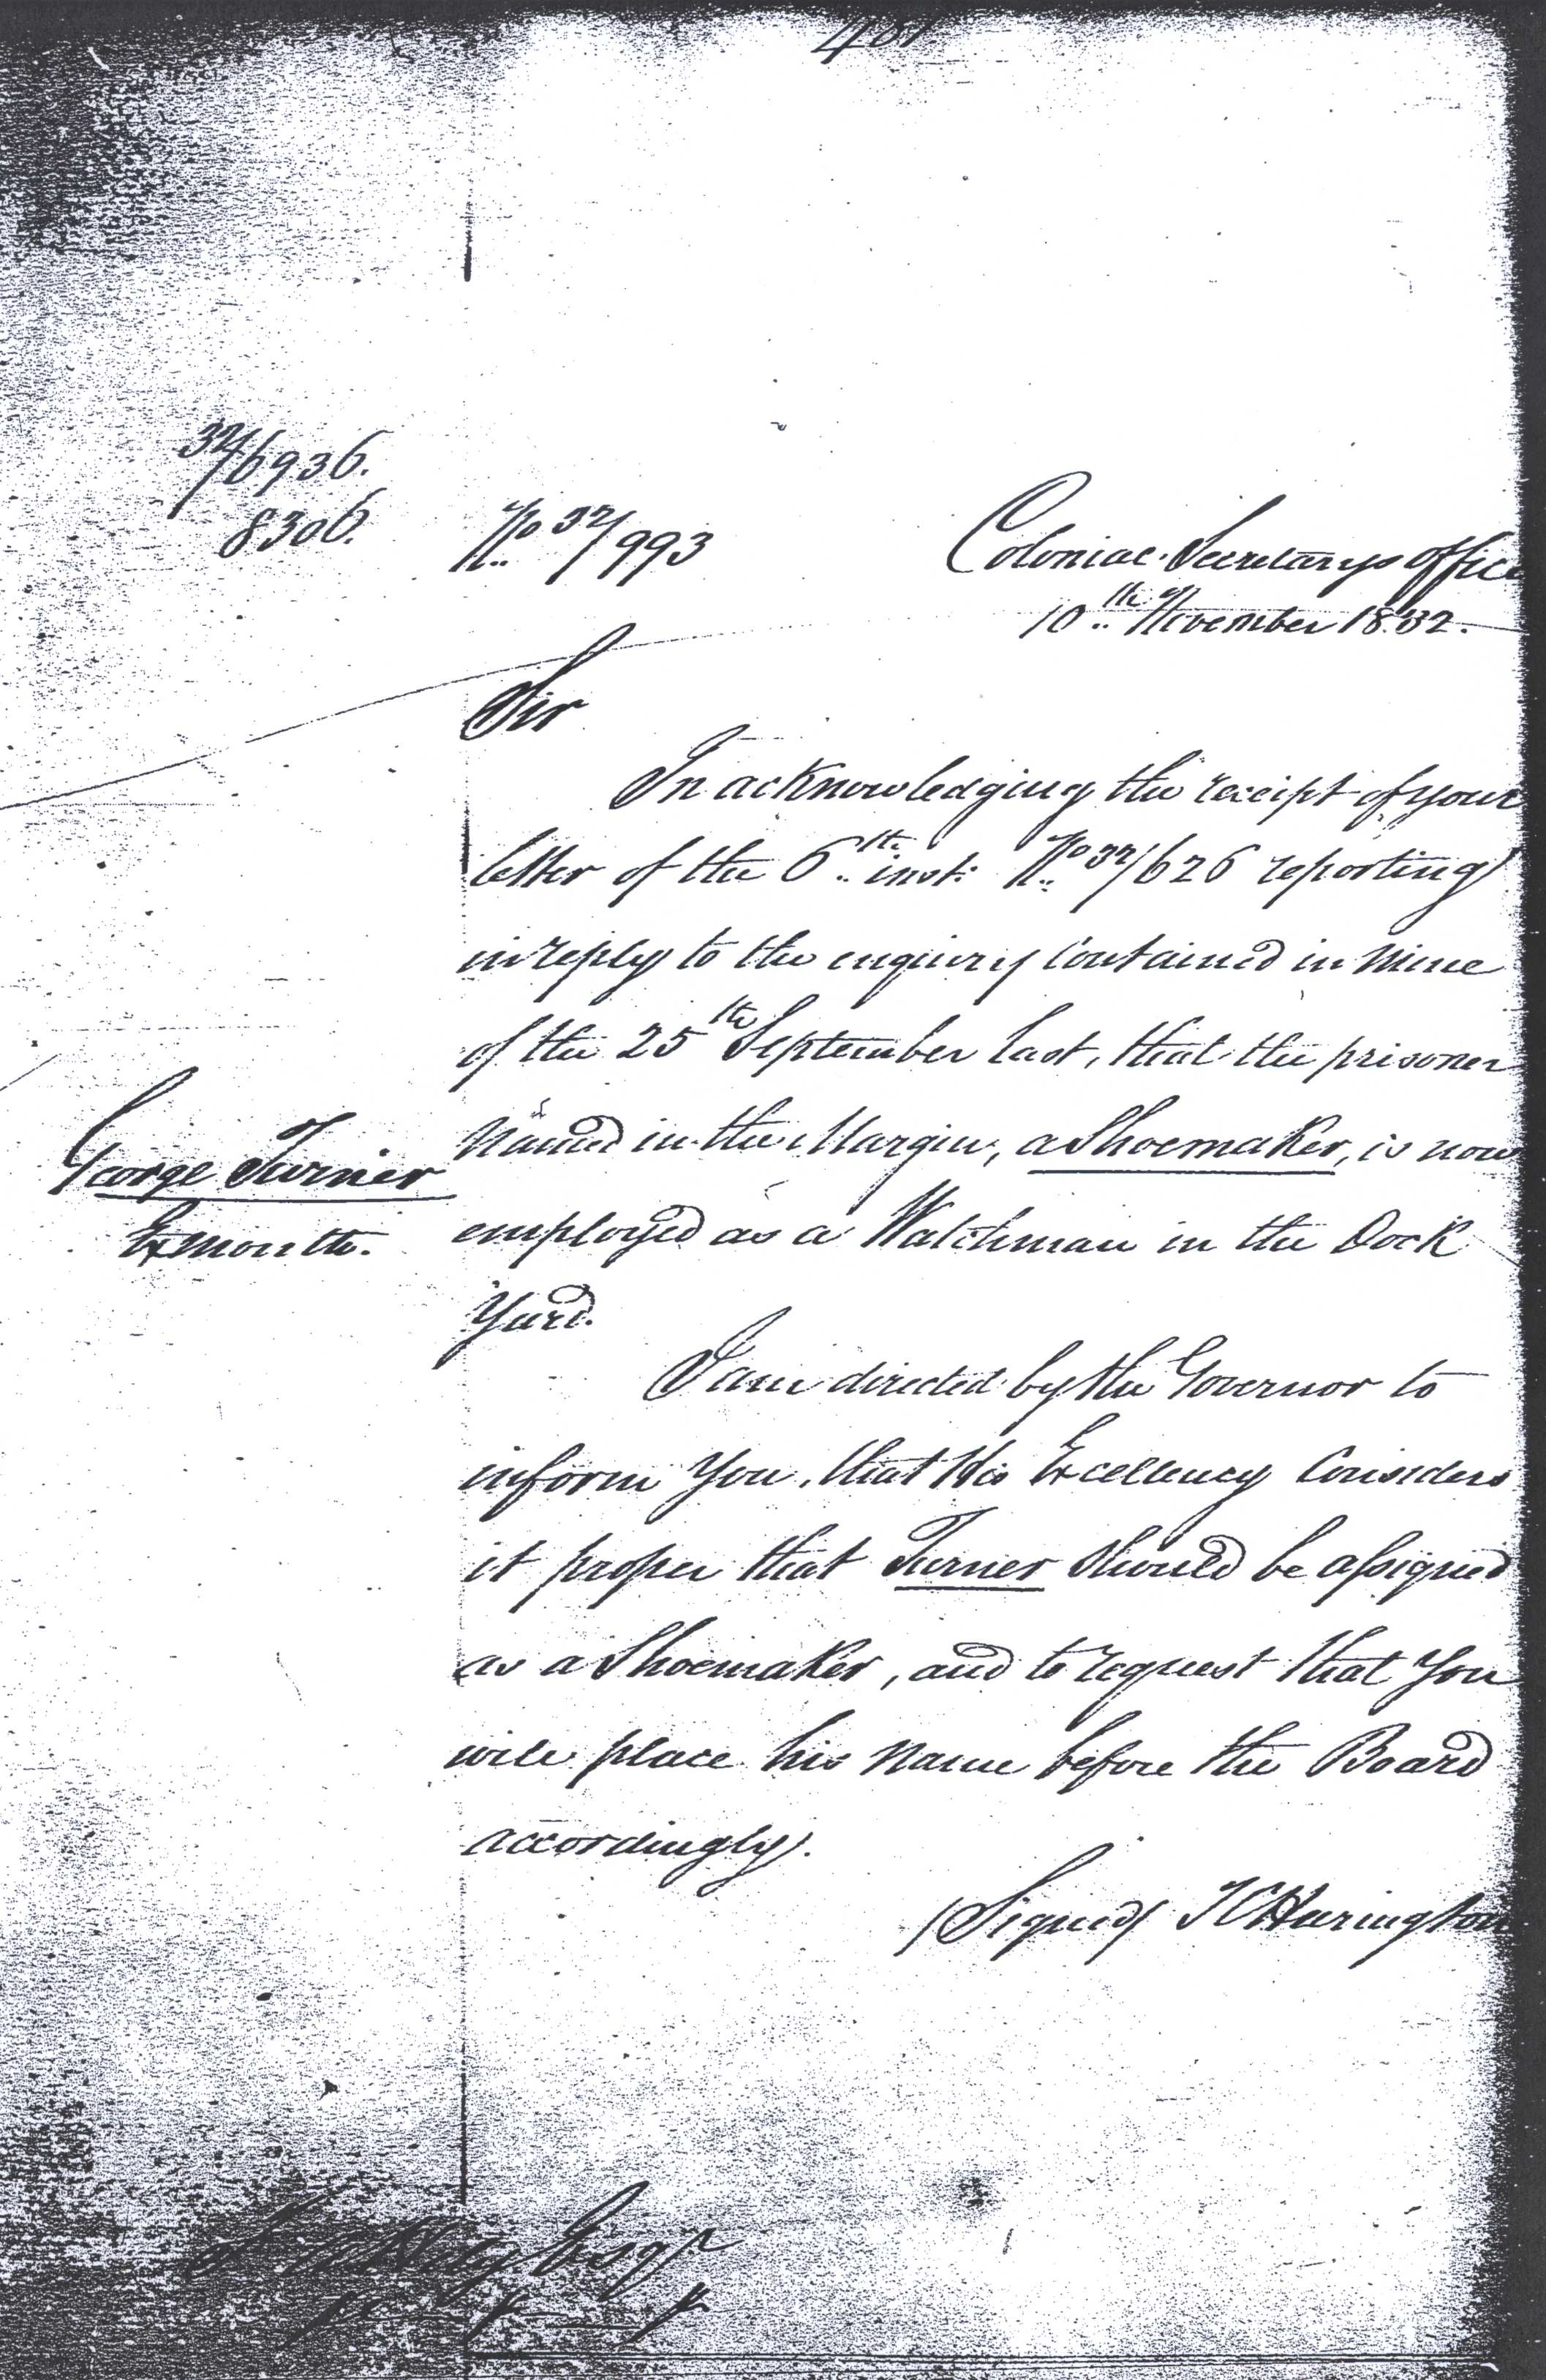 32/6936.
8306.
No 32/993
Colonial Secretary's Office
10th November 1832.
Sir
In acknowledging the receipt of your
letter of the 6th inst: No 32/626 reporting
in reply to the enquiry contained in mine
of the 25th September last, that the prisoner
George Turner
Exmouth.
Named in the Margin, a Shoemaker, is now
employed as a Watchman in the Dock
Yard.
I am directed by the Governor to
inform You, that His Excellency Considers
it proper that Turner should be assigned
as a Shoemaker, and to request that You
will place his Name before the Board
accordingly.
(Signed) T C Harington
Esqr